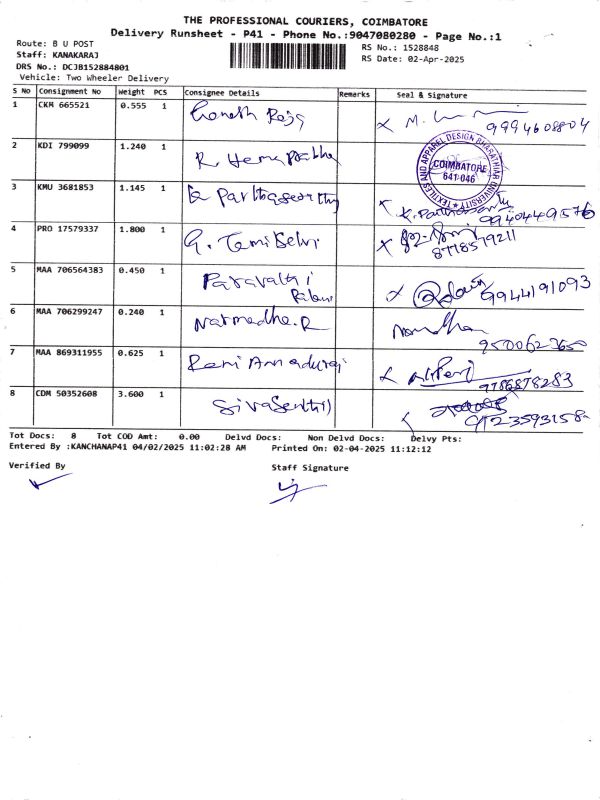 THE PROFESSIONAL COURIERS, COIMBATORE
Delivery Runsheet - P41 - Phone No.:9047080280 - Page No.:1
Route: B U POST
RS No.: 1528848
Staff: KANAKARAJ
RS Date: 02-Apr-2025
DRS No.: DCJB152884801
Vehicle: Two Wheeler Delivery
S No Consignment No Weight PCS Consignee Details Remarks Seal & Signature
1 CKM 665521 0.555 1 Ganesh Raja 9994608804
2 KDI 799099 1.240 1 R Hema Prabha
TEXTILES AND APPAREL DESIGN BHARATHIAR UNIVERSITY
COIMBATORE
641 046
3 KMU 3681853 1.145 1 K Parthasarathy K. Parthasarathy
9940449576
4 PRO 17579337 1.800 1 G. Tamil Selvi
8778579211
5 MAA 706564383 0.450 1 Paravathi 9944191093
6 MAA 706299247 0.240 1 Narmadha.R
9500623650
7 MAA 869311955 0.625 1 Remi Annadurai
9786878283
8 CDM 50352608 3.600 1 Sivasenthil
Tot Docs: 8 Tot COD Amt: 0.00 Delvd Docs: Non Delvd Docs: Delvy Pts:
Entered By :KANCHANAP41 04/02/2025 11:02:28 AM Printed On: 02-04-2025 11:12:12
Verified By
Staff Signature